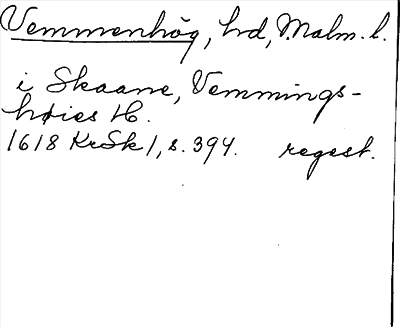 Vemmenhög, hd, Malm. l.
i Skaane, Vemmings-
høies H.
1618 KrSk 1, s. 394. regest.